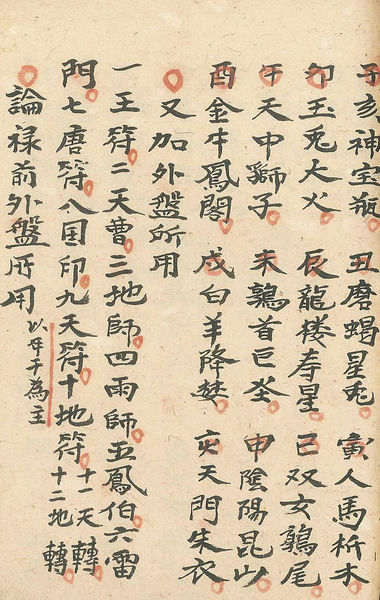 子亥神宝瓶 丑磨蝎星兎 寅人馬析木
卯玉兎大火 辰龍楼寿星 巳双女鶉尾
午天中獅子 未鶉首巨坐 申陰陽昆山
酉金牛鳳閣 戌白羊降婁 亥天門朱衣
又加外盤所用
一王符二天曹三地師四雨師五鳳伯六雷
門七唐符八国印九天符十地符 十一天轉 十二地轉
論禄前外盤所用 以年干為主